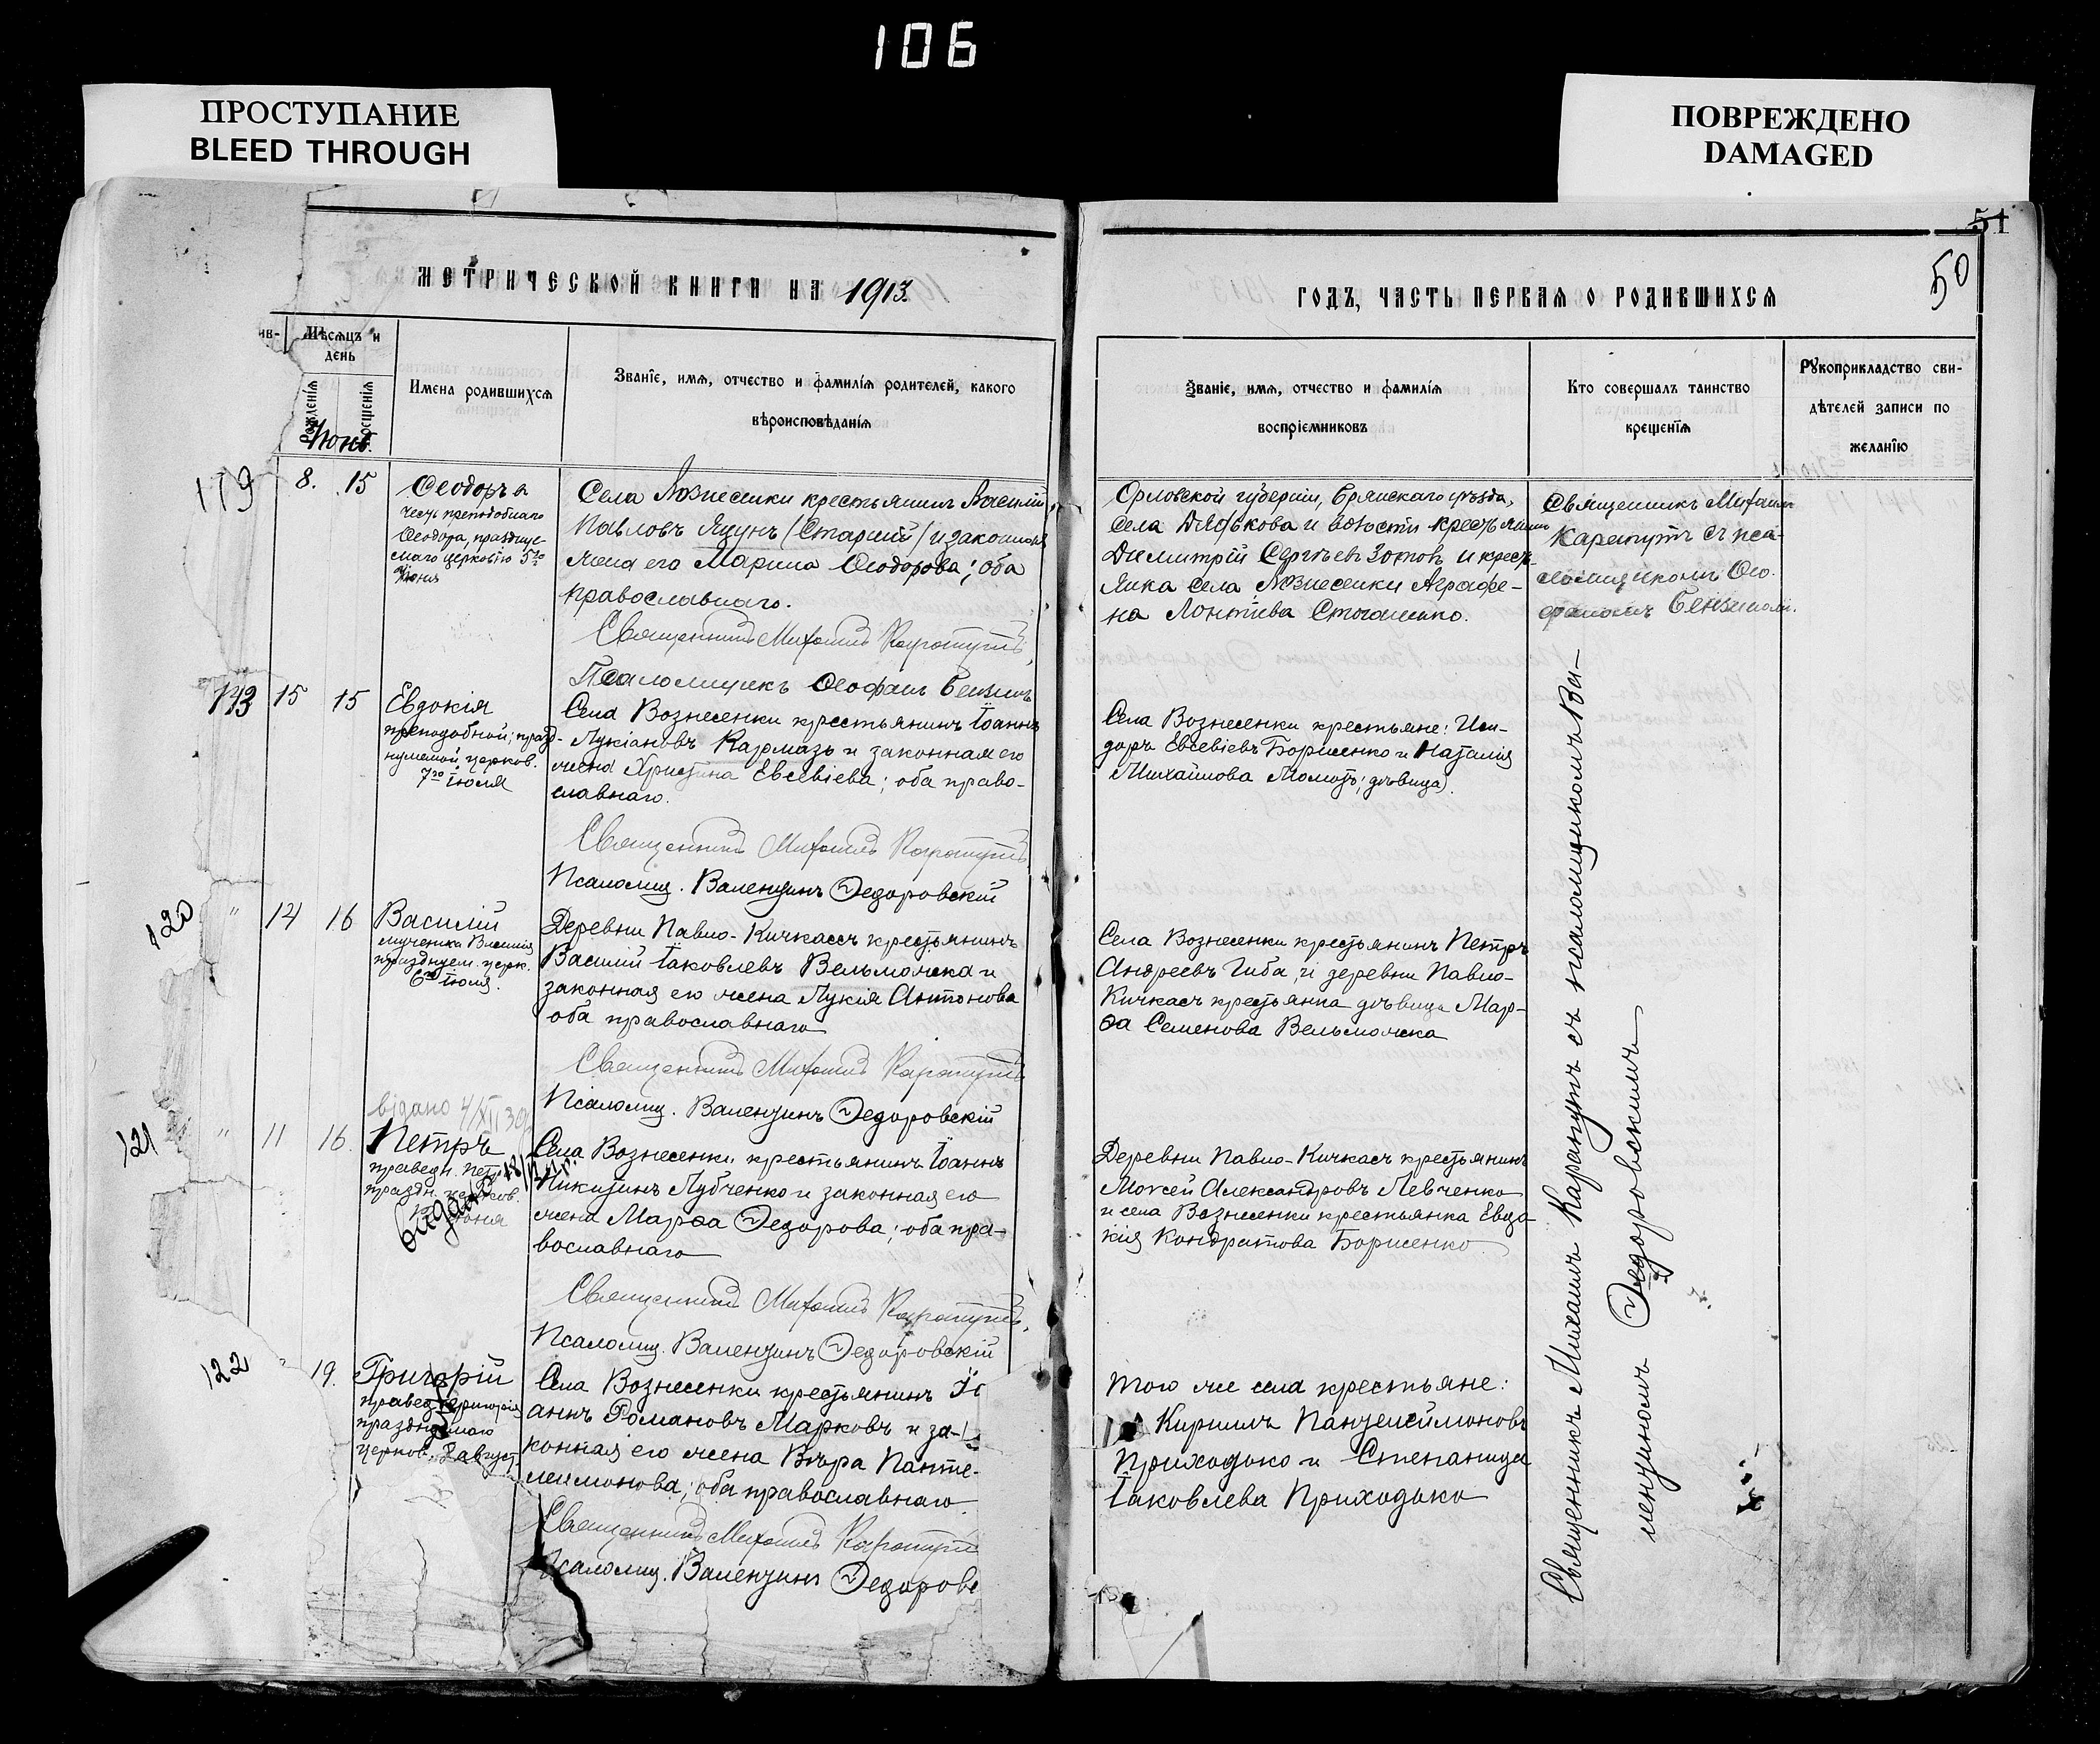 106
ПРОСТУПАНИЕ
BLEED THROUGH
ПОВРЕЖДЕНО
DAMAGED
51
50
МЕТРИЧЕСКОЙ КНИГИ НА 1913
ГОДЪ, ЧАСТЬ ПЕРВАЯ О РОДИВШИХСЯ
Мѣсяцъ и
день
Рожденія
Крещенія
Имена родившихся
Званіе, имя, отчество и фамилія родителей, какого
вѣроисповѣданія
Званіе, имя, отчество и фамилія
воспріемниковъ
Кто совершалъ таинство
крещенія
Рукоприкладство сви-
дѣтелей записи по
желанію
Іюнь.
8. 15
Ѳеодоръ
преподобнаго
Ѳеодора, праздуе-
маго церковію 5го
Іюня
Села Вознесенки крестьянинъ Василій
Павловъ Яцунъ (Старшій) и законная
жена его Марина Ѳеодорова; оба
православнаго.
Священникъ Михаилъ Карапутъ
Псаломщикъ Ѳеофанъ
Орловской губерніи, Брянскаго уѣзда,
села Дядькова и волости крестьянинъ
Димитрій Сергѣевъ Зотовъ и кресть-
янка села Вознесенки Агрофе-
на Леонтіева
Священникъ Михаилъ
Карапутъ съ пса-
ломщикомъ Ѳео-
фаномъ
15 15
Евдокія
преподобной; празд-
нуемой церков.
7го Іюля
Села Вознесенки крестьянинъ Іоаннъ
Лукіановъ Кармазь и законная его
жена Христина Евсевіева; оба право-
славнаго.
Священникъ Михаилъ Карапутъ
Псаломщ. Валентинъ Ѳедоровскій
Села Вознесенки крестьяне: Иси-
доръ Евсевіевъ Борисенко и Наталія
Михаилова Момотъ; (дѣвица).
120 " 14 16
Василій
мученика Василія
празднуем. церк.
6го Іюля.
Деревни Павло-Кичкассъ крестьянинъ
Василій Іаковлевъ Вельможка и
законная его жена Лукія Антонова
оба православнаго
Священникъ Михаилъ Карапутъ
Псаломщ. Валентинъ Ѳедоровскій
Села Вознесенки крестьянинъ Петръ
Андреевъ Гиба, и деревни Павло-
Кичкасъ крестьянка дѣвица Мар-
ѳа Семенова Вельможка
121 " 11 16.
Петръ
праведн. Петр
праздн. церков.
Іюня
Села Вознесенки крестьянинъ Іоаннъ
Никитинъ Лубченко и законная его
жена Марѳа Ѳедорова; оба пра-
вославнаго
Священникъ Михаилъ Карапутъ
Псаломщ. Валентинъ Ѳедоровскій
Деревни Павло-Кичкасъ крестьянинъ
Моисей Александровъ Левченко
и села Вознесенки крестьянка Евдо-
кія Кондратова Борисенко
122 19.
Григорій
правед. Григорія
празднуемаго
церков. 8 август.
Села Вознесенки крестьянинъ Іо
аннъ Романовъ Марковъ и за-
конная его жена Вѣра Панте-
леимонова; оба православнаго
Священникъ Михаилъ Карапутъ
Псаломщ. Валентинъ Ѳедоровс
Того же села крестьяне:
Кириллъ Пантелеймоновъ
Приходько и Степанида
Іаковлева Приходько
Священникъ Михаилъ Карапутъ съ псаломщикомъ Ва-
лентиномъ Ѳедоровскимъ